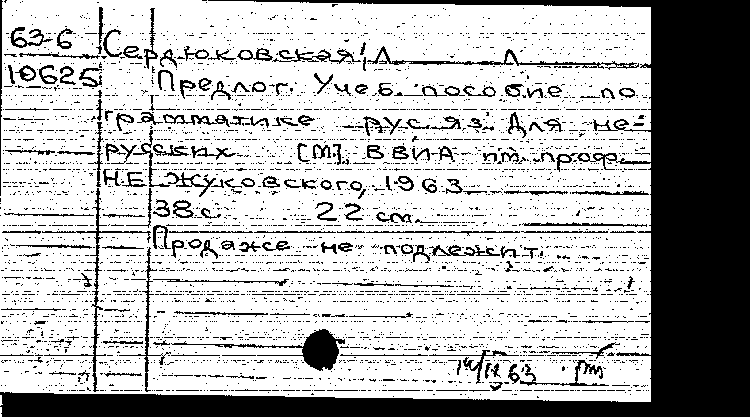 63-6 Сердюковская, Л. Л
10625 Предлог. Учеб. пособие по
грамматике рус. яз. Для не-
русских [М], ВВИА им. проф.
Н.Е. Жуковского, 1963
38 с. 22 см.
Продаже не подлежит.
63